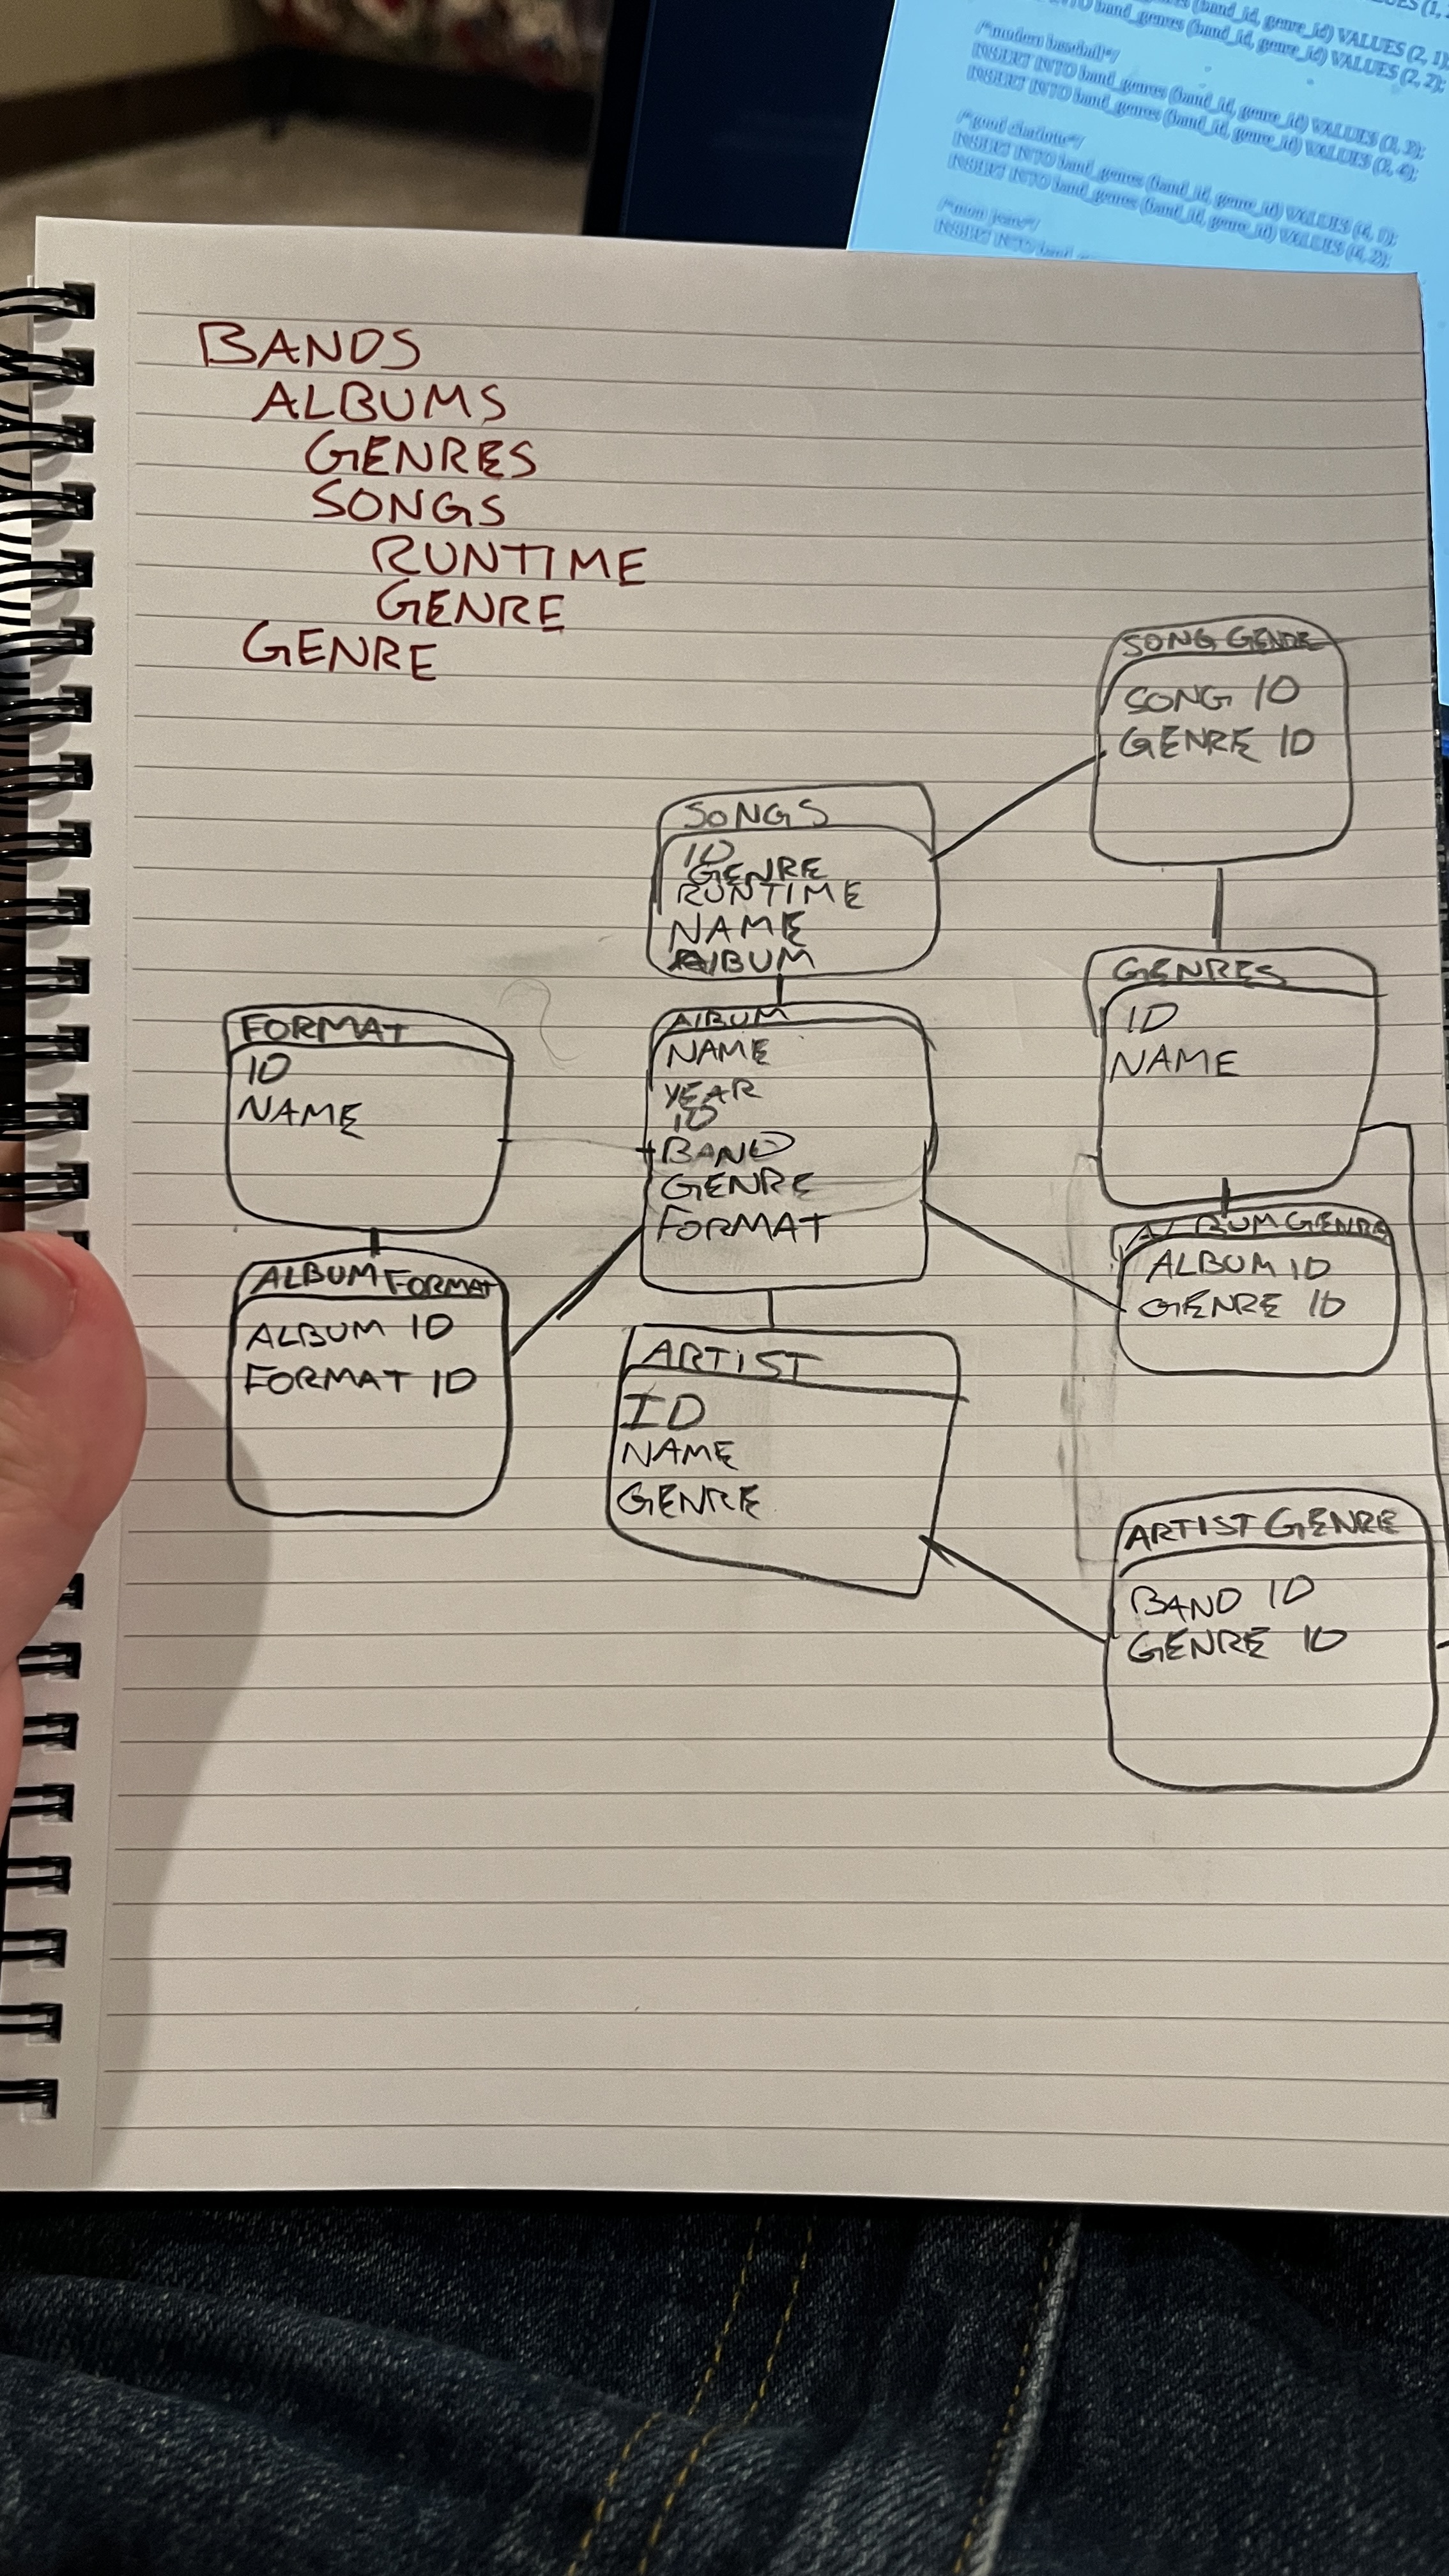 (band_id, genre_id) VALUES (2, 1);
band_genres (band_id, genre_id) VALUES (2, 2);
/*modern baseball*/
INSERT INTO band_genres (band_id, genre_id) VALUES (3, 3);
INSERT INTO band_genres (band_id, genre_id) VALUES (3, 4);
/*good charlotte*/
INSERT INTO band_genres (band_id, genre_id) VALUES (4, 1);
INSERT INTO band_genres (band_id, genre_id) VALUES (4, 2);
INSERT INTO
BANDS
ALBUMS
GENRES
SONGS
RUNTIME
GENRE
GENRE
SONG GENRE
SONG ID
GENRE ID
SONGS
ID
GENRE
RUNTIME
NAME
ALBUM
GENRES
ID
NAME
FORMAT
ID
NAME
ALBUM
NAME
YEAR
ID
BAND
GENRE
FORMAT
ALBUM GENRE
ALBUM ID
GENRE ID
ALBUM FORMAT
ALBUM ID
FORMAT ID
ARTIST
ID
NAME
GENRE
ARTIST GENRE
BAND ID
GENRE ID